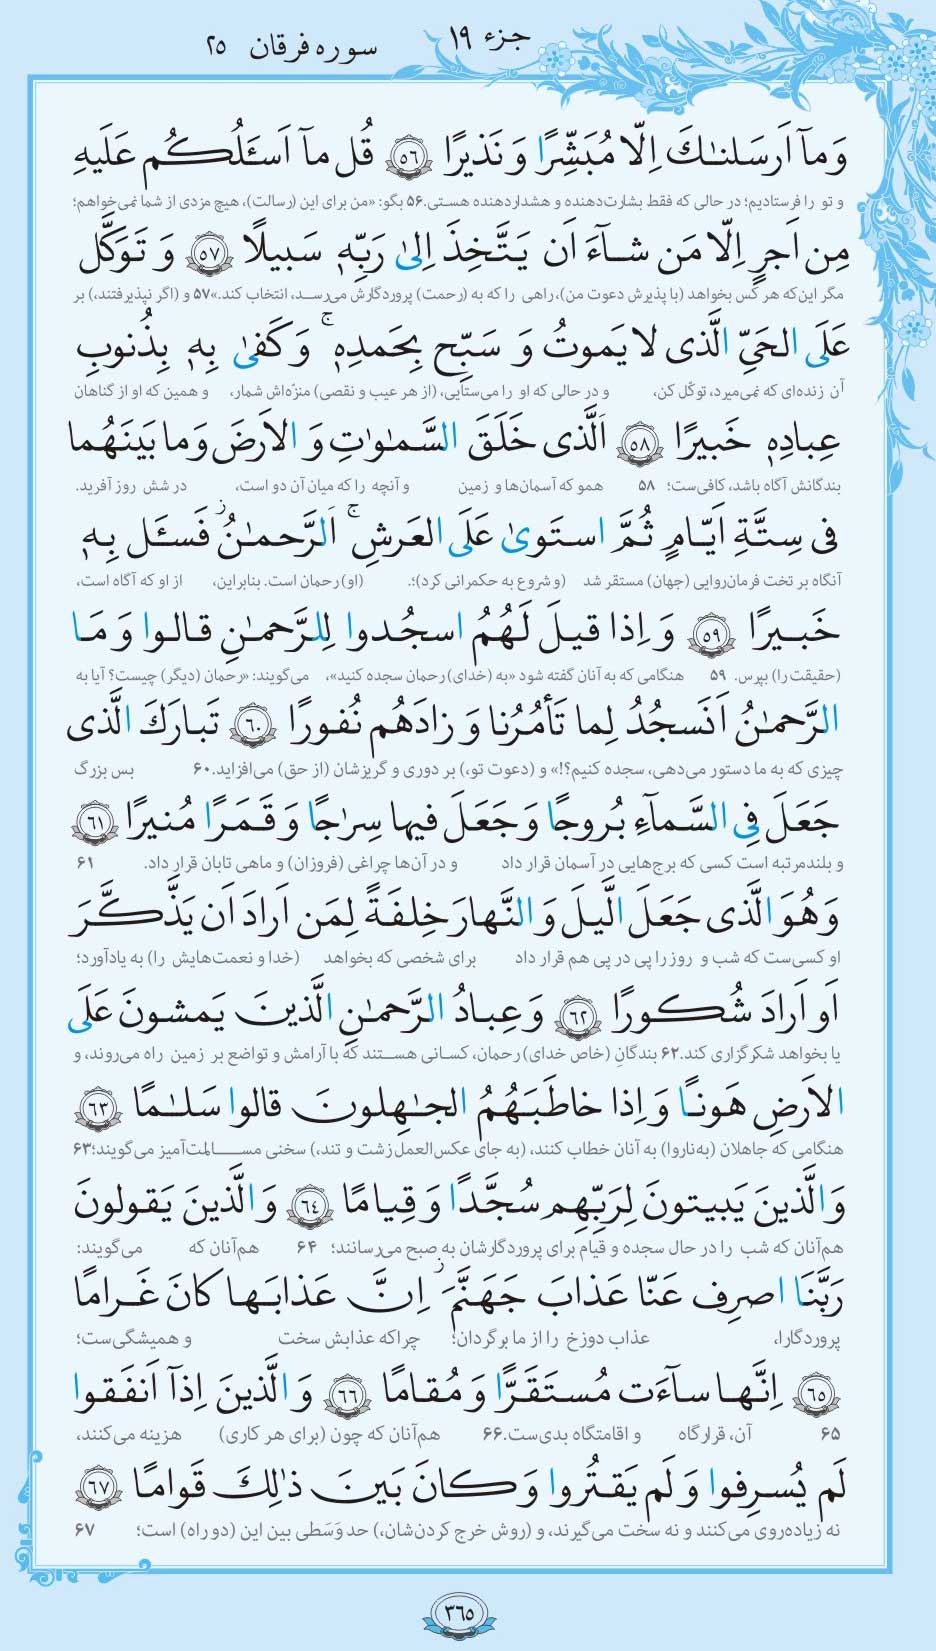 جزء ۱۹
سوره فرقان ۲۵
وَمآ اَرسَلنٰكَ اِلّا مُبَشِّرًا وَ نَذيرًا ﴿٥٦﴾ قُل مآ اَسـَٔلُكُم عَلَيهِ
و تو را فرستادیم؛ در حالی که فقط بشارت‌دهنده و هشداردهنده هستی.۵۶ بگو: «من برای این (رسالت)، هیچ مزدی از شما نمی‌خواهم؛
مِن اَجرٍ اِلّا مَن شآءَ اَن يَتَّخِذَ اِلىٰ رَبِّهٖ سَبيلًا ﴿٥٧﴾ وَ تَوَكَّل
مگر این‌که هر کس بخواهد (با پذیرش دعوت من)، راهی را که به (رحمت) پروردگارش می‌رسد، انتخاب کند.»۵۷ و (اگر نپذیرفتند،) بر
عَلَى الحَىِّ الَّذى لا يَموتُ وَ سَبِّح بِحَمدِهٖ ۚ وَ كَفىٰ بِهٖ بِذُنوبِ
آن زنده‌ای که نمی‌میرد، توکّل کن، و در حالی که او را می‌ستایی، (از هر عیب و نقصی) منزّه‌اش شمار، و همین که او از گناهان
عِبادِهٖ خَبيرًا ﴿٥٨﴾ اَلَّذى خَلَقَ السَّمٰوٰتِ وَ الاَرضَ وَما بَينَهُما
بندگانش آگاه باشد، کافی‌ست؛ ۵۸ همو که آسمان‌ها و زمین و آنچه را که میان آن دو است، در شش روز آفرید.
فى سِتَّةِ اَيّامٍ ثُمَّ استَوىٰ عَلَى العَرشِ ۚ اَلرَّحمٰنُ ۖ فَسـَٔل بِهٖ
آنگاه بر تخت فرمان‌روایی (جهان) مستقر شد (و شروع به حکمرانی کرد)؛. (او) رحمان است. بنابراین، از او که آگاه است،
خَبيرًا ﴿٥٩﴾ وَ اِذا قيلَ لَهُمُ اسجُدوا لِلرَّحمٰنِ قالوا وَ مَا
(حقیقت را) بپرس. ۵۹ هنگامی که به آنان گفته شود «به (خدای) رحمان سجده کنید»، می‌گویند: «رحمان (دیگر) چیست؟ آیا به
الرَّحمٰنُ اَنَسجُدُ لِما تَأمُرُنا وَ زادَهُم نُفورًا ﴿٦٠﴾ تَبارَكَ الَّذى
چیزی که به ما دستور می‌دهی، سجده کنیم؟!» و (دعوت تو،) بر دوری و گریزشان (از حق) می‌افزاید.۶۰ بس بزرگ
جَعَلَ فِى السَّمآءِ بُروجًا وَ جَعَلَ فيها سِرٰجًا وَ قَمَرًا مُنيرًا ﴿٦١﴾
و بلندمرتبه است کسی که برج‌هایی در آسمان قرار داد و در آن‌ها چراغی (فروزان) و ماهی تابان قرار داد. ۶۱
وَ هُوَ الَّذى جَعَلَ الَّيلَ وَ النَّهارَ خِلفَةً لِمَن اَرادَ اَن يَذَّكَّرَ
او کسی‌ست که شب و روز را پی در پی هم قرار داد برای شخصی که بخواهد (خدا و نعمت‌هایش را) به یادآورد؛
اَو اَرادَ شُكورًا ﴿٦٢﴾ وَ عِبادُ الرَّحمٰنِ الَّذينَ يَمشونَ عَلَى
یا بخواهد شکرگزاری کند.۶۲ بندگانِ (خاص خدای) رحمان، کسانی هستند که با آرامش و تواضع بر زمین راه می‌روند، و
الاَرضِ هَونًا وَ اِذا خاطَبَهُمُ الجٰهِلونَ قالوا سَلٰمًا ﴿٦٣﴾
هنگامی که جاهلان (به‌ناروا) به آنان خطاب کنند، (به جای عکس‌العمل زشت و تند،) سخنی مسالمت‌آمیز می‌گویند؛۶۳
وَ الَّذينَ يَبيتونَ لِرَبِّهِم سُجَّدًا وَ قِيامًا ﴿٦٤﴾ وَ الَّذينَ يَقولونَ
هم‌آنان که شب را در حال سجده و قیام برای پروردگارشان به صبح می‌رسانند؛ ۶۴ هم‌آنان که می‌گویند:
رَبَّنَا اصرِف عَنّا عَذابَ جَهَنَّمَ ۖ اِنَّ عَذابَها كانَ غَرامًا
پروردگارا، عذاب دوزخ را از ما برگردان؛ چراکه عذابش سخت و همیشگی‌ست؛
﴿٦٥﴾ اِنَّها سآءَت مُستَقَرًّا وَ مُقامًا ﴿٦٦﴾ وَ الَّذينَ اِذآ اَنفَقوا
۶۵ آن، قرارگاه و اقامتگاه بدی‌ست.۶۶ هم‌آنان که چون (برای هر کاری) هزینه می‌کنند،
لَم يُسرِفوا وَ لَم يَقتُروا وَ كانَ بَينَ ذٰلِكَ قَوامًا ﴿٦٧﴾
نه زیاده‌روی می‌کنند و نه سخت می‌گیرند، و (روش خرج کردن‌شان،) حد وَسَطی بین این (دو راه) است؛ ۶۷
۳۶۵